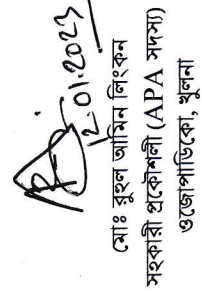 12.01.2023
মোঃ রুহুল আমিন লিংকন
সহকারী প্রকৌশলী (APA সদস্য)
ওজোপাডিকো, খুলনা